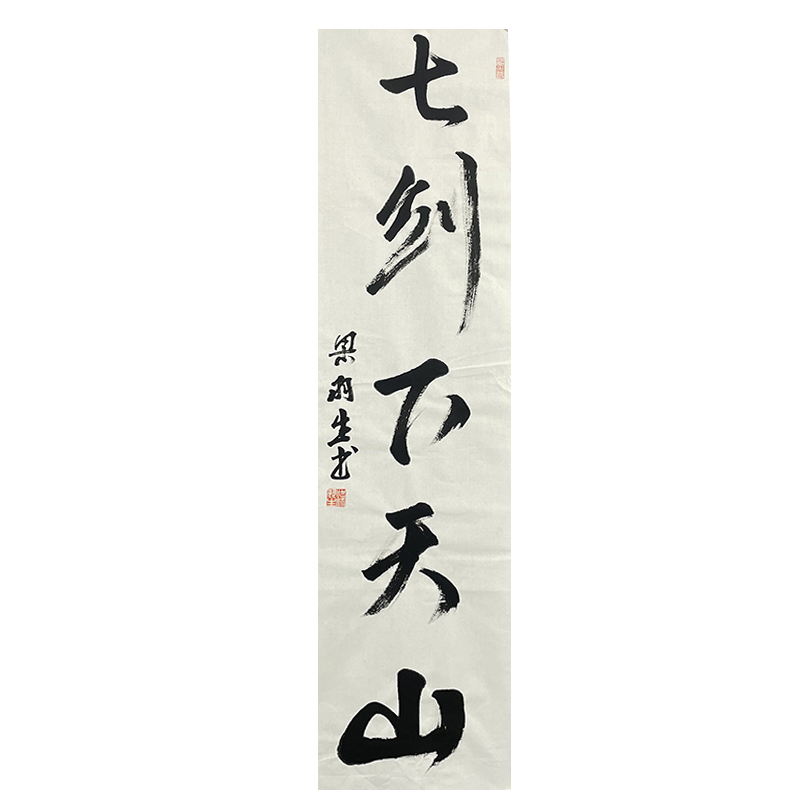 七剑下天山
梁羽生书